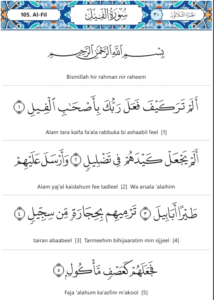 105. Al-Fil سُورَةُ الفِيل ٣٠
بِسْمِ اللَّهِ الرَّحْمَٰنِ الرَّحِيمِ
Bismillah hir rahman nir raheem
أَلَمْ تَرَ كَيْفَ فَعَلَ رَبُّكَ بِأَصْحَابِ الْفِيلِ ١
Alam tara kaifa fa'ala rabbuka bi ashaabil feel [1]
أَلَمْ يَجْعَلْ كَيْدَهُمْ فِي تَضْلِيلٍ ٢ وَأَرْسَلَ عَلَيْهِمْ
Alam yaj'al kaidahum fee tadleel [2] Wa arsala 'alaihim
طَيْرًا أَبَابِيلَ ٣ تَرْمِيهِم بِحِجَارَةٍ مِّن سِجِّيلٍ ٤
tairan abaabeel [3] Tarmeehim bihijaaratim min sijjeel [4]
فَجَعَلَهُمْ كَعَصْفٍ مَّأْكُولٍ ٥
Faja 'alahum ka'asfim m'akool [5]